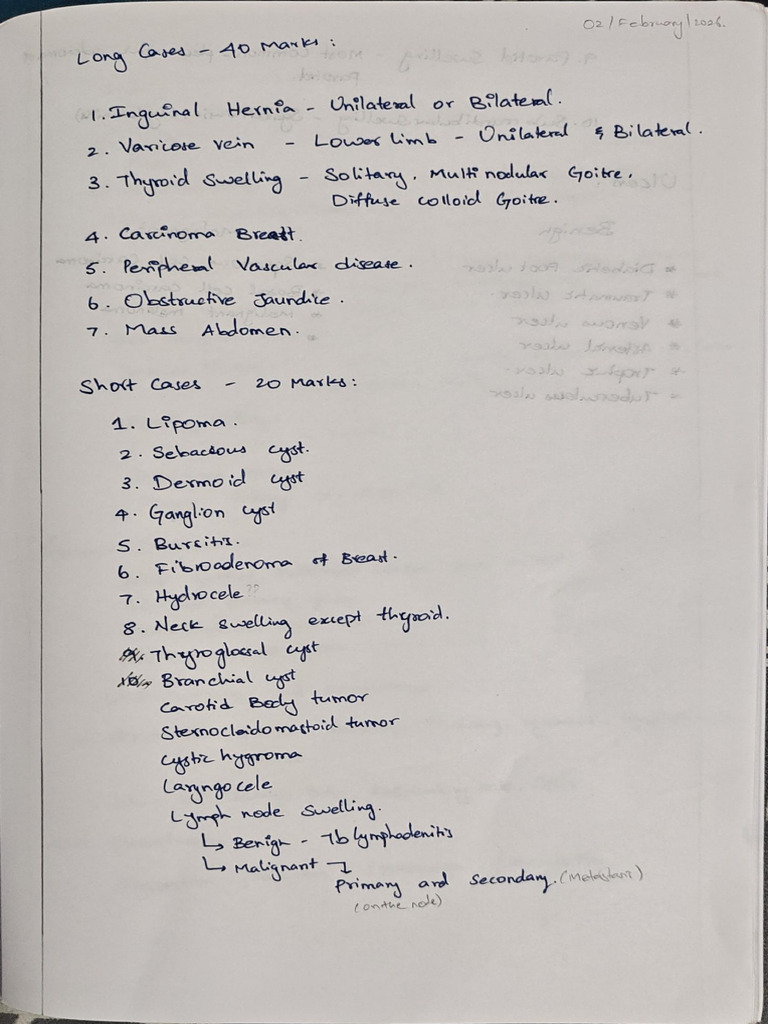 02/February/2026.
Long Cases - 40 Marks:
1. Inguinal Hernia - Unilateral or Bilateral.
2. Varicose vein - Lower limb - Unilateral & Bilateral.
3. Thyroid Swelling - Solitary. Multinodular Goitre.
Diffuse colloid Goitre.
4. Carcinoma Breast.
5. Peripheral Vascular disease.
6. Obstructive Jaundice.
7. Mass Abdomen.
Short Cases - 20 Marks:
1. Lipoma.
2. Sebacious cyst.
3. Dermoid cyst
4. Ganglion cyst
5. Bursitis.
6. Fibroadenoma of Breast.
7. Hydrocele ??
8. Neck swelling except thyroid.
Thyroglossal cyst
Branchial cyst
Carotid Body tumor
Sternocleidomastoid tumor
cystic hygroma
Laryngocele
Lymph node swelling.
↳ Benign - Tb lymphadenitis
↳ Malignant
Primary and secondary. (Metastasis)
(on the node)